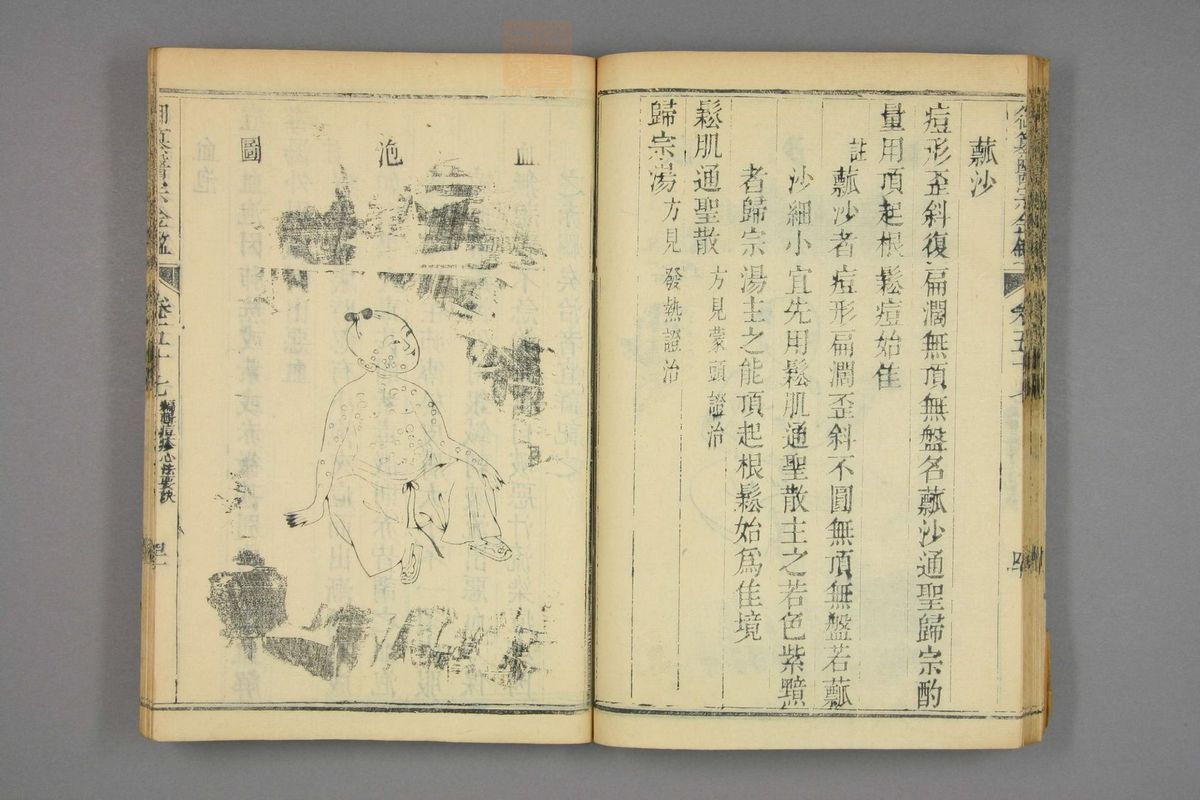 瓤沙
痘形歪斜復扁濶無頂無盤名瓤沙通聖歸宗酌
量用頂起根鬆痘始佳
註瓤沙者痘形扁濶歪斜不圓無頂無盤若瓤
沙細小宜先用鬆肌通聖散主之若色紫黯
者歸宗湯主之能頂起根鬆始爲佳境
鬆肌通聖散方見蒙頭證治
歸宗湯方見發熱證治
血泡圖
御纂醫宗金鑑 卷五十七 編輯痘疹心法要訣